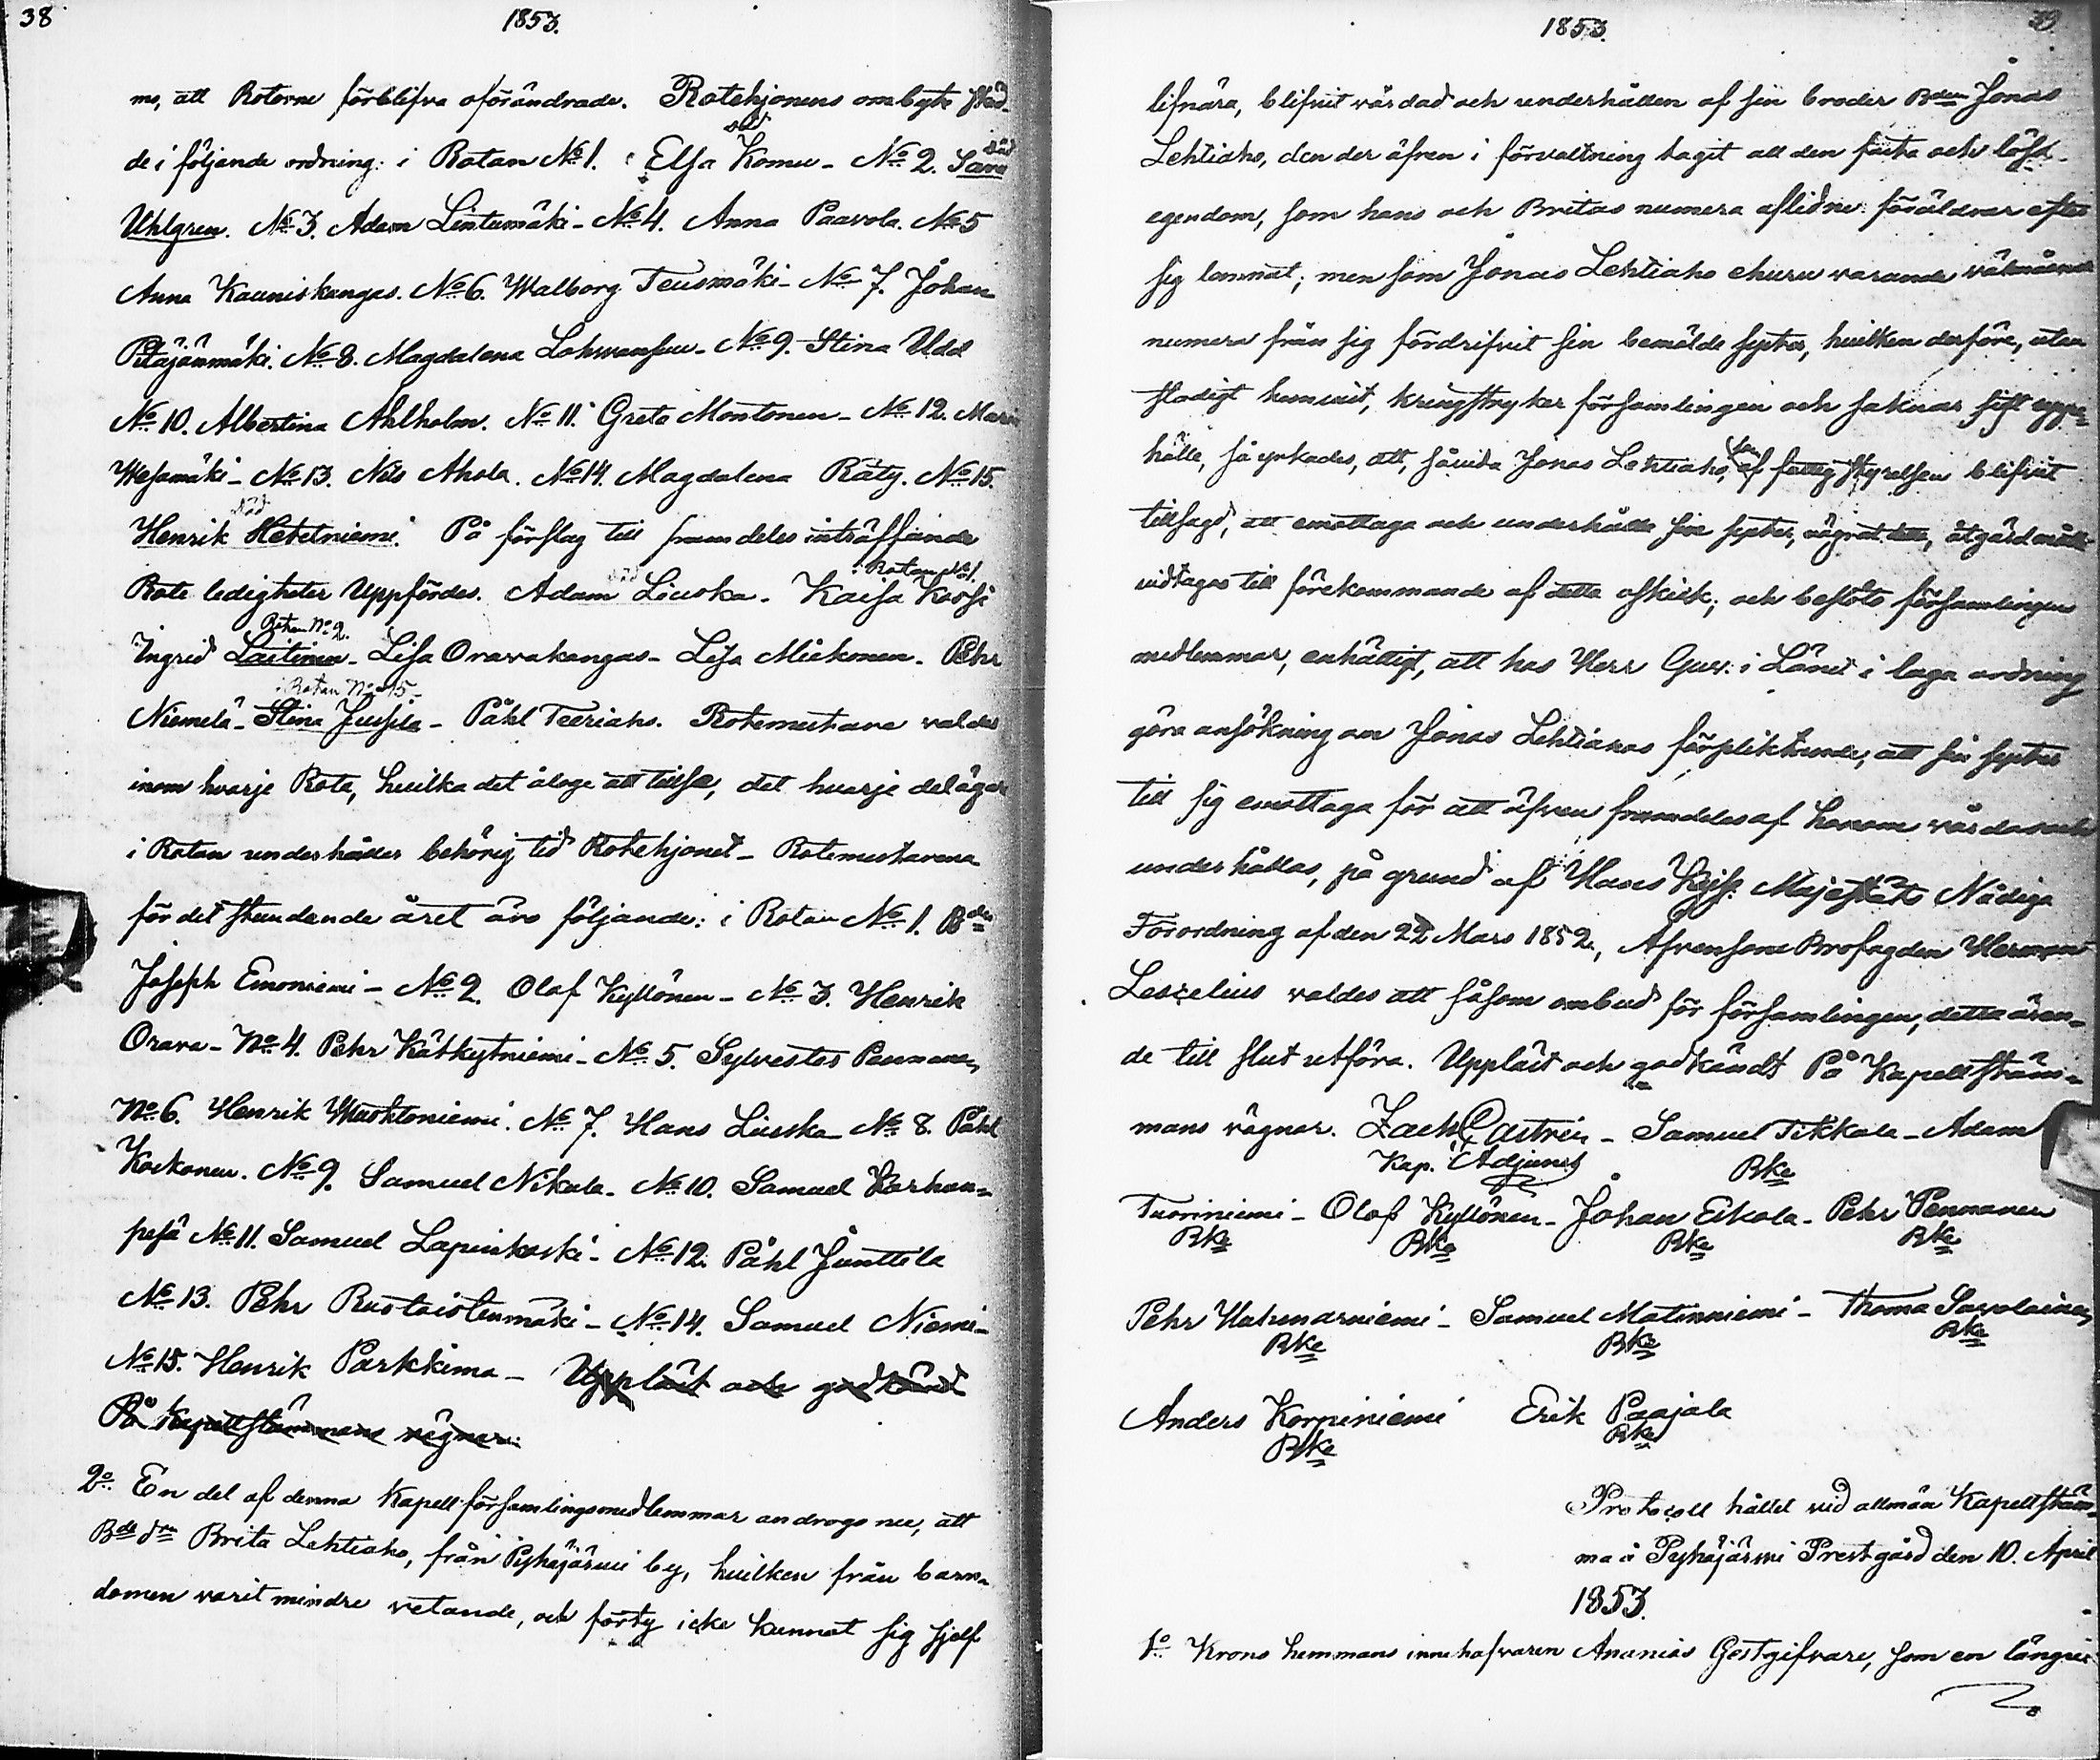 38
1853.
me, att Rotorne förblifva oförändrade. Rotehjonens ombyte sked-
död
död
de i följande ordning: i Rotan No 1. Elsa Komu - No 2. Sara
Uhlgren. No 3. Adam Lintumäki - No 4. Anna Paavola. No 5
Anna Kauniskangas. No 6. Walborg Teusmäki - No 7. Johan
Pitäjänmäki. No 8. Magdalena Lohvansuu - No 9. Stina Udd
No 10. Albertina Ahlholm. No 11. Greta Montonen - No 12. Maria
Wesamäki - No 13. Nils Ahola. No 14. Magdalena Räty. No 15.
död
Henrik Hetetniemi. På förslag till framdeles inträffande
död
i Rotan No 1.
Rote ledigheter Uppfördes. Adam Liuska. Kaisa Kossi
Rotan No 2.
Ingrid Laitinen - Lisa Oravakangas - Lisa Miekonen. Pehr
i Rotan No 15.
Niemelä - Stina Jussila - Påhl Teeriaho. Rotemästare valdes
inom hvarje Rote, hvilka det åloge att tillse, det hvarje delägare
i Rotan underhåller behörig tid Rotehjonet - Rotemästarena
för det stundande året äro följande: i Rotan No 1. Bden
Joseph Emoniemi - No 2. Olof Kyllönen - No 3. Henrik
Orava - No 4. Pehr Kätkytniemi - No 5. Sylvester Penmanen
No 6. Henrik Mustoniemi. No 7. Hans Liuska No 8. Påhl
Koikonen. No 9. Samuel Nikula. No 10. Samuel Karhun-
pesä No 11. Samuel Lapinkoski - No 12. Påhl Junttila
No 13. Pehr Ruotaistenmäki - No 14. Samuel Niemi -
No 15. Henrik Parkkima - Uppläst och godkänd
På Kapellstämmans vägnar:
2o En del af denna Kapellförsamlingsmedlemmar androgo nu, att
Bde dn Brita Lehtiaho, från Pyhäjärvi by, hvilken från barn-
domen varit mindre vetande, och förty icke kunnat sig sjelf
1853.
39
lifnära, blifvit vårdad och underhållen af sin broder Bden Jonas
Lehtiaho, den der äfven i förvaltning tagit all den fasta och lösa
egendom, som hans och Britas numera aflidne föräldrar efter
sig lemnat; men som Jonas Lehtiaho ehuru varande välmående
numera från sig fördrifvit sin bemälde syster, hvilken derföre, utan
stadigt hemvist, kringstryker församlingen och saknar fist uppe-
hälle, så yrkades, att, såvida Jonas Lehtiaho, som af fattigstyrelsen blifvit
tillsagd, att emottaga och underhålla sin syster, vägrat detta, åtgärd måtte
vidtagas till förekommande af detta oskick; och beslöts församlingens
medlemmar, enhälligt, att hos Herr Guv: i Länet i laga ordning
göra ansökning om Jonas Lehtiahos förpliktande, att sin syster
till sig emottaga för att äfven framdeles af honom vårdas och
underhållas, på grund af Hans Kejs. Majestäts Nådiga
Förordning af den 22 Mars 1852., Äfvensom Brofogden Herman
Lescelius valdes att såsom ombud för församlingen, detta ären-
de till slut utföra. Uppläst och godkändt På Kapellstäm-
mans vägnar. Zach. Castrén - Samuel Tikkala - Adam
Kap. Adjunct
Bke
Tuoriniemi - Olof Kyllönen - Johan Eskola - Pehr Penmanen
Bke Bke Bke Bke
Pehr Hahenarniemi - Samuel Matinniemi - Thoma Savolainen
Bke Bke Bke
Anders Korpiniemi Erik Paajala
Bke Bke
Protocoll hållet vid allmän Kapellstäm-
ma i Pyhäjärvi Prestgård den 10. April
1853.
1o Krono hemmans innehafvaren Ananias Gestgifvare, som en längre